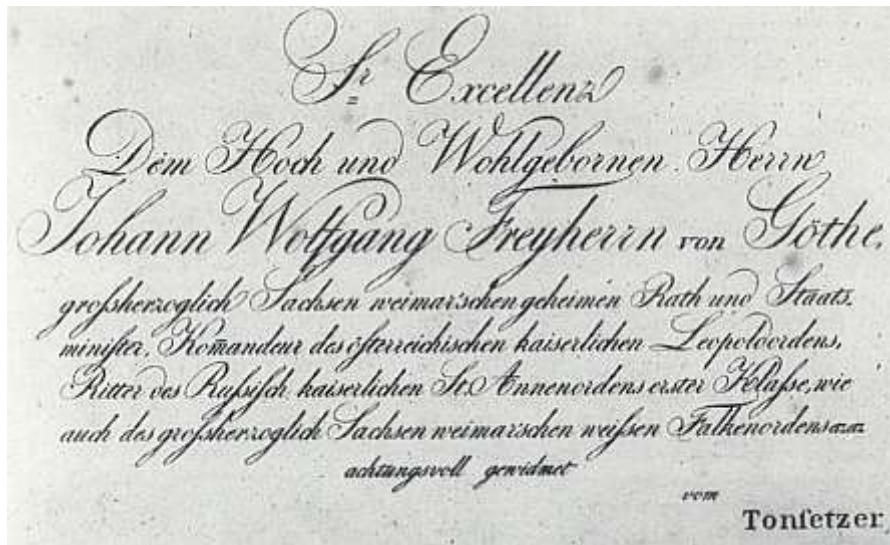 Sr Excellenz
Dem Hoch und Wohlgebornen Herrn
Johann Wolfgang Freyherrn von Göthe,
großherzoglich Sachsen weimar'schen geheimen Rath und Staats-
minister, Kom̅andeur des österreichischen kaiserlichen Leopoldordens,
Ritter des Rußisch kaiserlichen St. Annenordens erster Klaße, wie
auch des großherzoglich Sachsen weimar'schen weißen Falkenordens
achtungsvoll gewidmet
vom
Tonſetzer